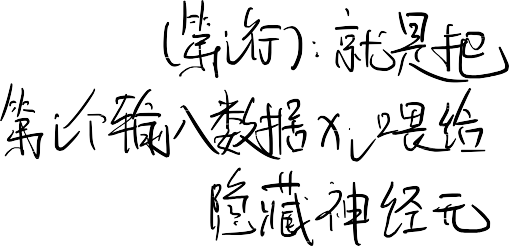 (第i行)：就是把
第i个输入数据xi喂给
隐藏神经元